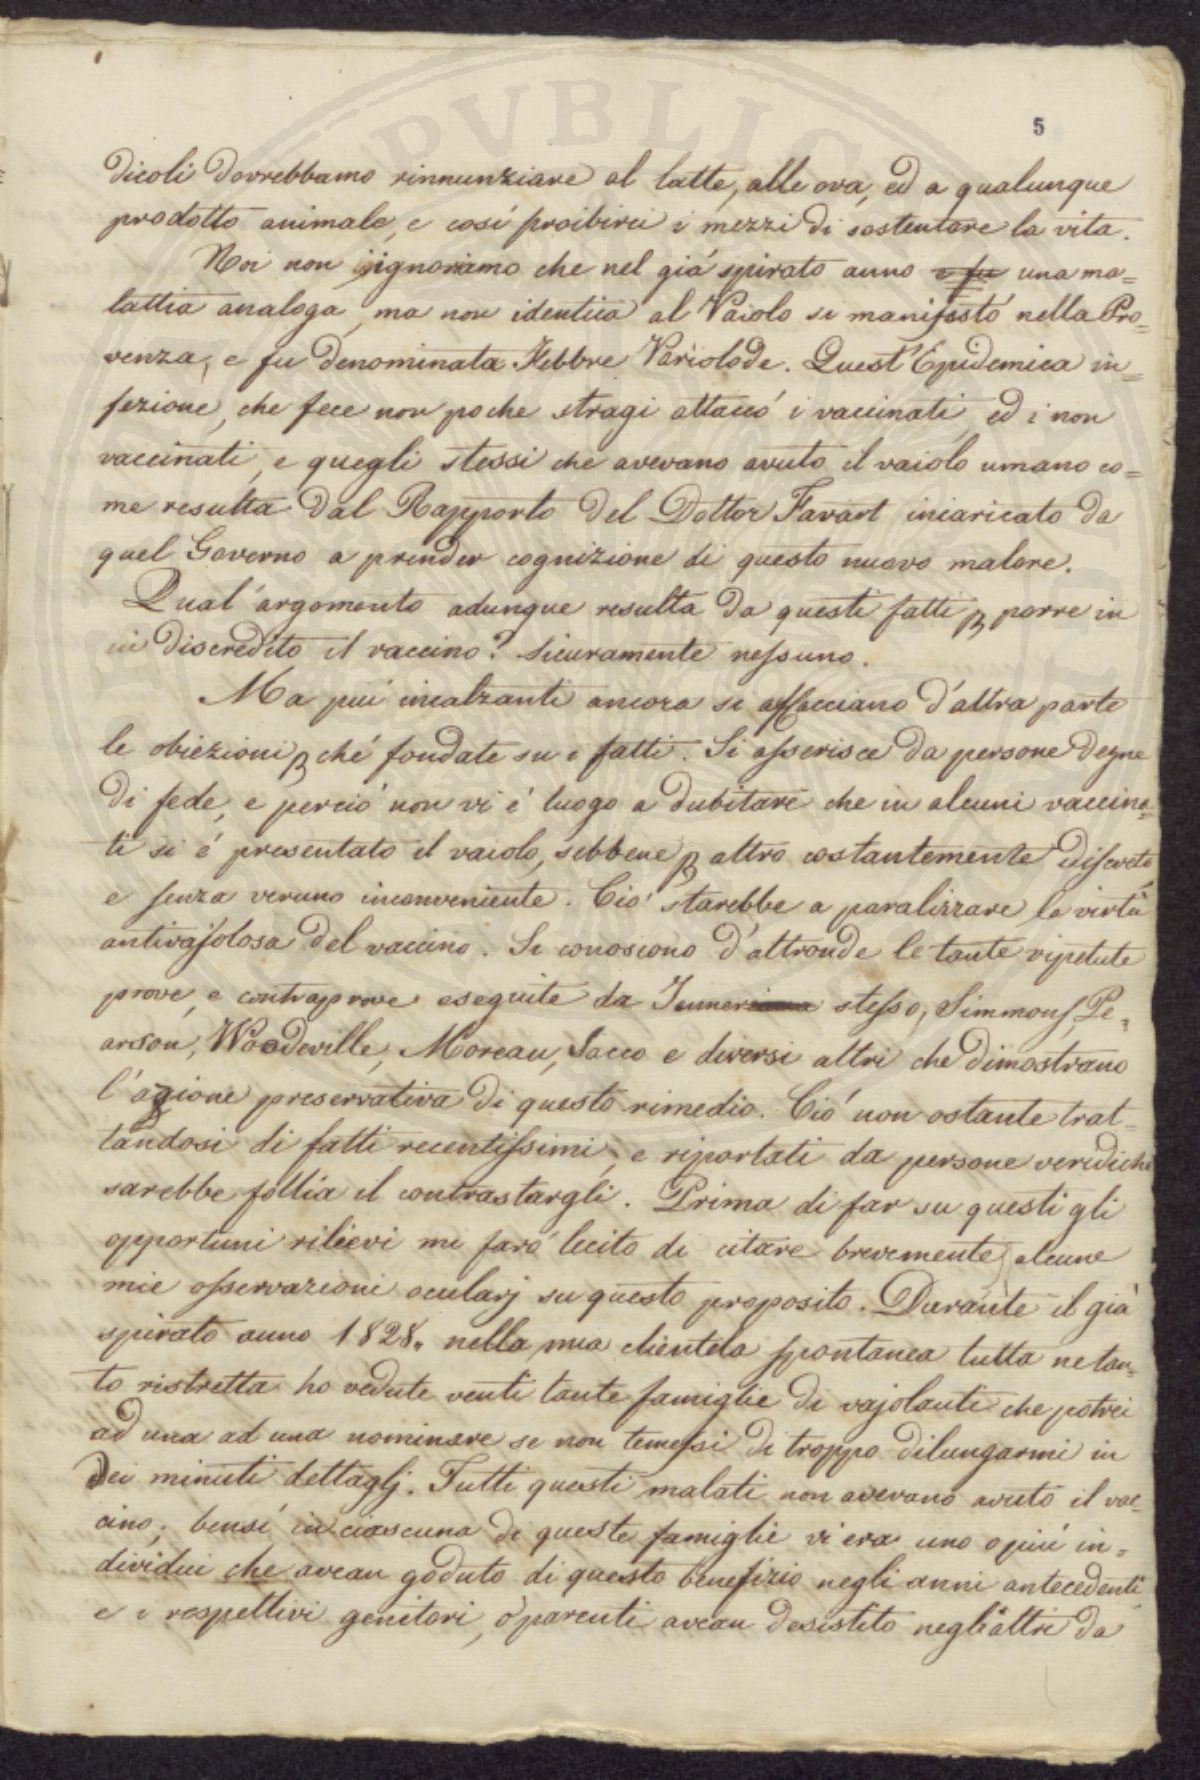 5
dicoli dovrebbamo rinnunziare al latte, alle ova, ed a qualunque
prodotto animale, e così proibirci i mezzi di sostentare la vita.
Noi non ignoriamo che nel già spirato anno e fu una ma=
lattia analoga, ma non identica al Vaiolo si manifestò nella Pro=
venza, e fu denominata Febbre Varïolode. Quest'Epidemica in=
fezione, che fece non poche stragi attaccó i vaccinati, ed i non
vaccinati, e quegli stessi che avevano avuto il vaiolo umano co=
me resulta dal Rapporto del Dottor Favart incaricato da
quel Governo a prender cognizione di questo nuovo malore.
Qual'argomento adunque resulta da questi fatti p porre in
in discredito il vaccino? sicuramente nessuno.
Ma piú incalzanti ancora si affacciano d'altra parte
le obiezioni p ché fondate su i fatti. Si asserisce da persone degne
di fede, e perció non vi é luogo a dubitare che in alcuni vaccina=
ti si é presentato il vaiolo, sebbene p altro costantemente discreto
e senza veruno inconveniente. Ció starebbe a paralizzare la virtù
antivajolosa del vaccino. Si conoscono d'altronde le tante ripetute
prove, e contraprove eseguite da Jenner stesso, Simmons, Pe=
arson, Woodeville, Moreau, Sacco e diversi altri che dimostrano
l'azione preservativa di questo rimedio. Ció non ostante trat=
tandosi di fatti recentissimi, e riportati da persone veridiche
sarebbe follia il contrastargli. Prima di far su questi gli
opportuni rilievi mi faró lecito di citare brevemente alcune
mie osservazioni ocularj su questo proposito. Durante il già
spirato anno 1828. nella mia clientela spontanea tutta ne tan=
to ristretta ho vedute venti tante famiglie di vajolanti che potrei
ad una ad una nominare se non temessi di troppo dilungarmi in
dei minuti dettaglj. Tutti questi malati non avevano avuto il vac=
cino; bensí in ciascuna di queste famiglie vi era uno o piú in=
dividui che avean goduto di questo benefizio negli anni antecedenti
e i respettivi genitori, o parenti avean desistito negli altri da